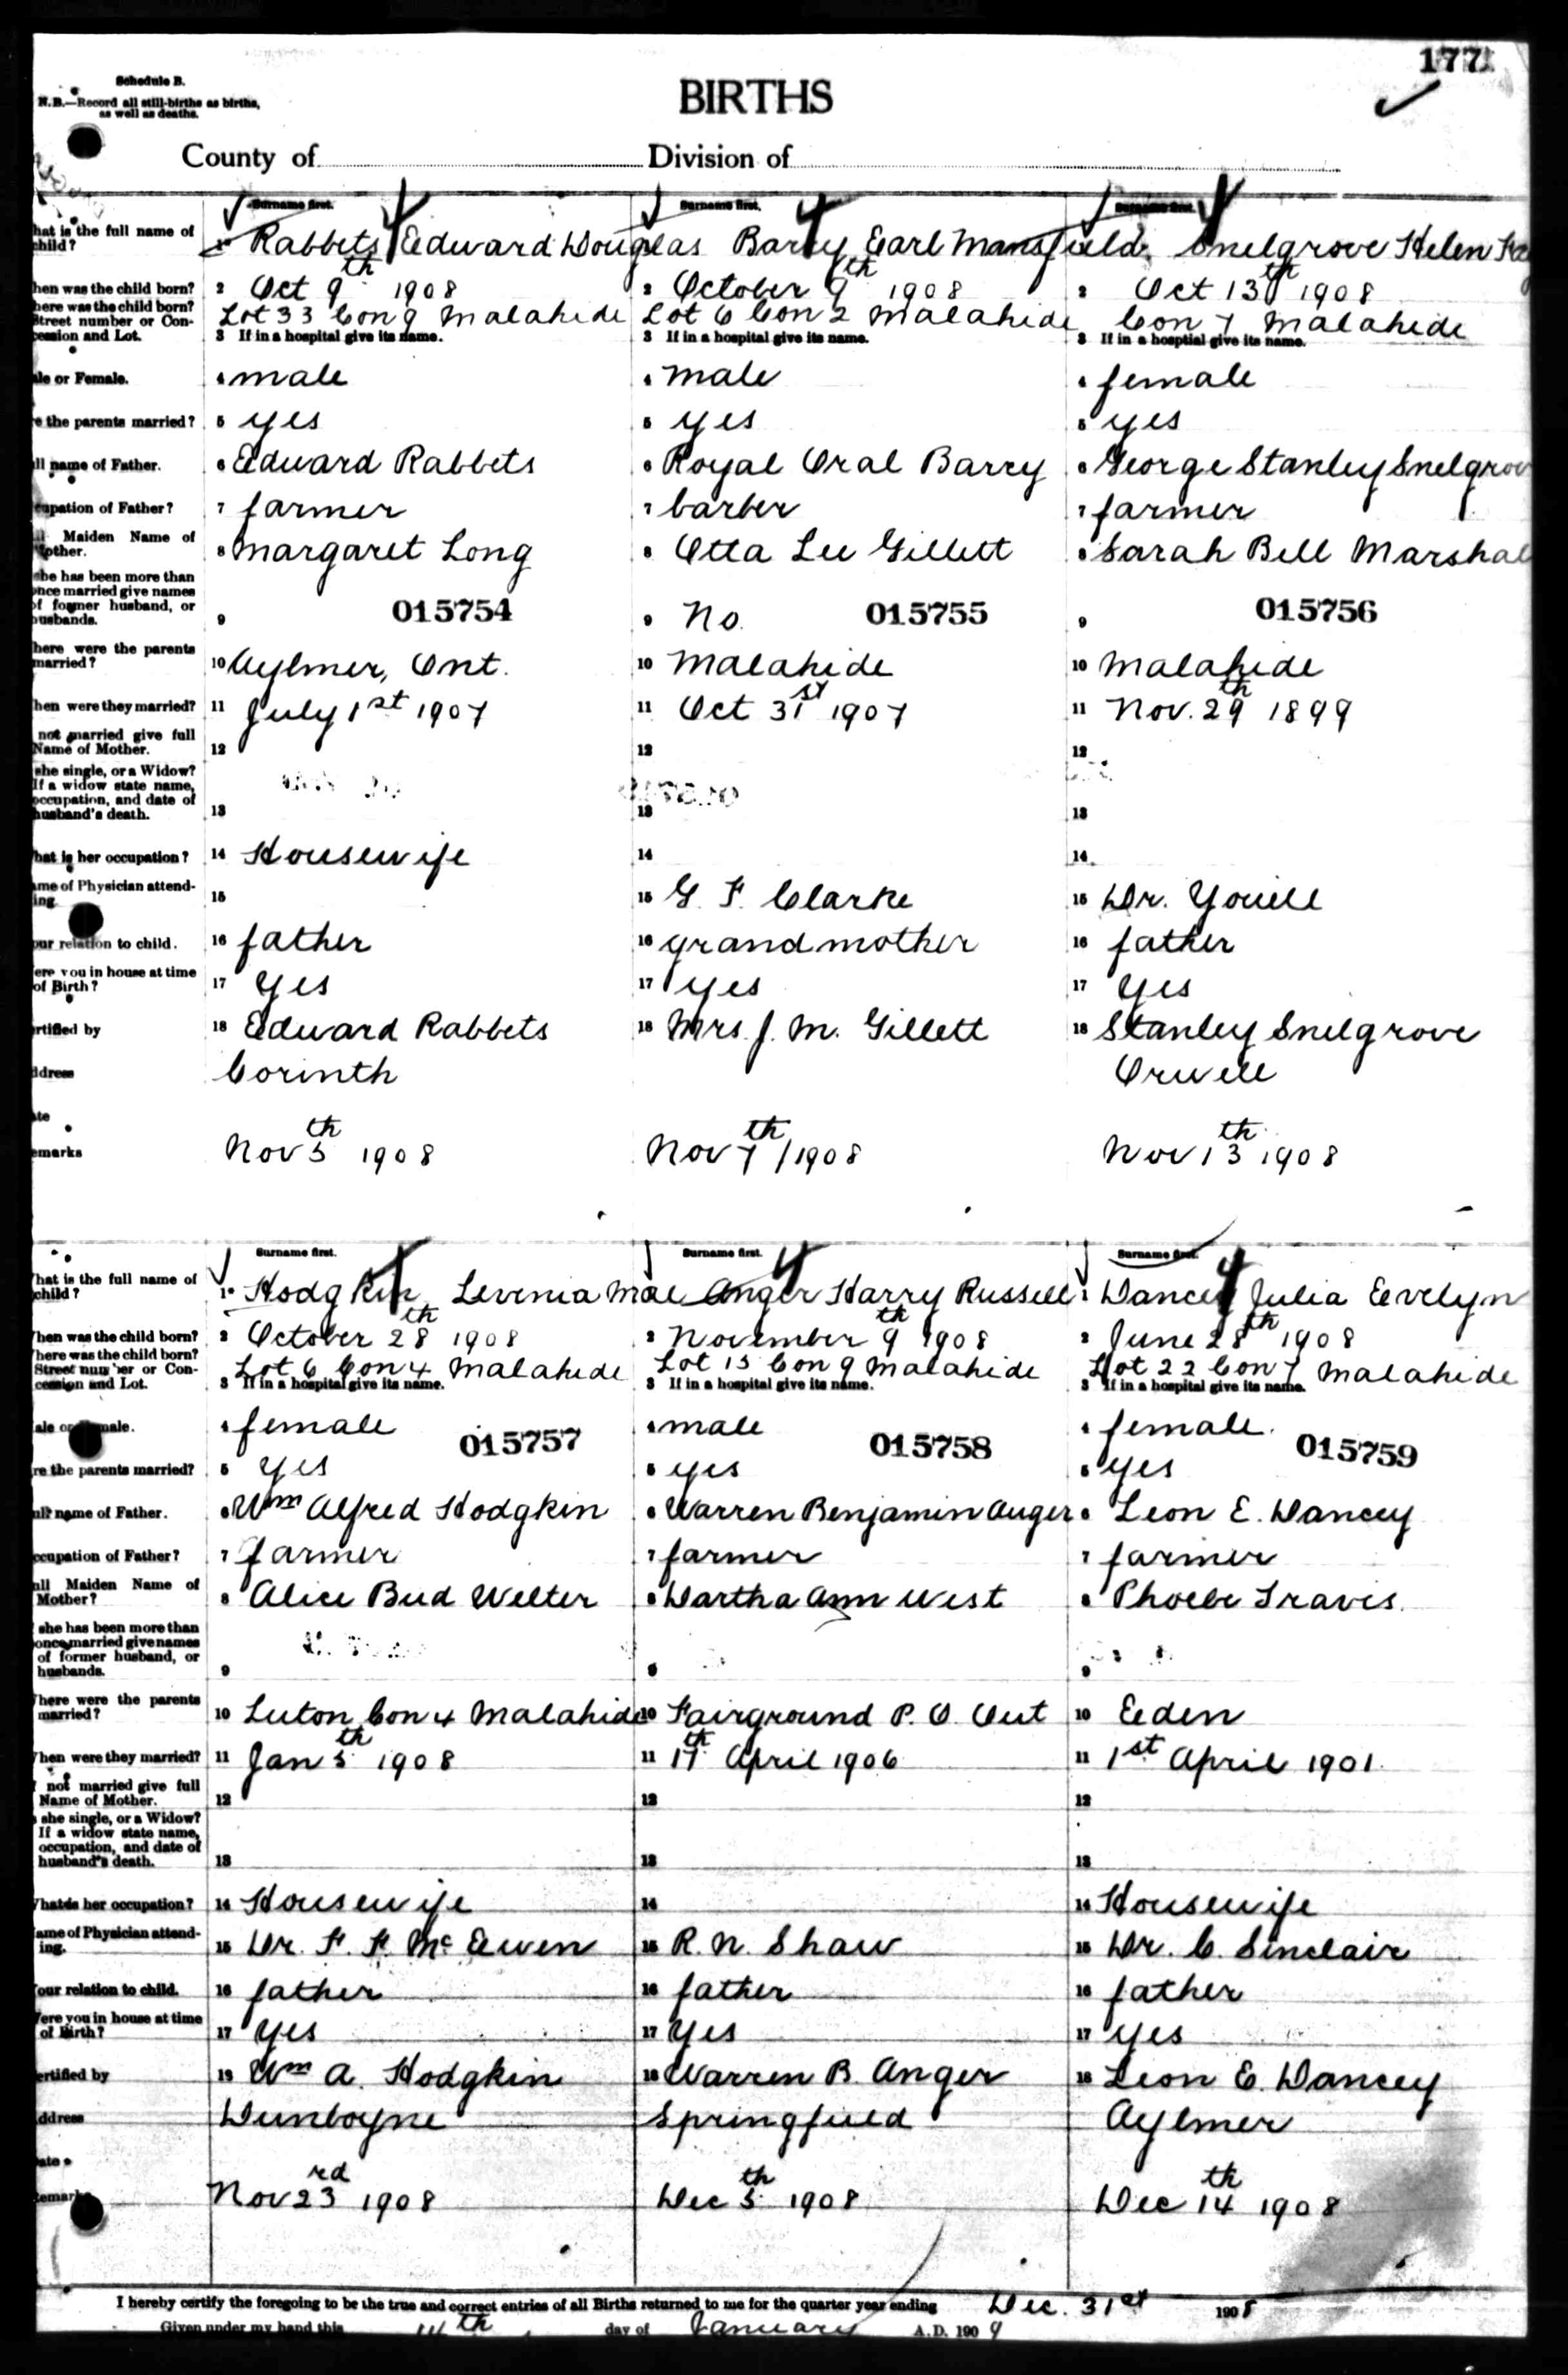 177
Schedule B.
N.B.—Record all still-births as births,
as well as deaths.
BIRTHS
County of Division of
Surname first. Surname first. Surname first.
hat is the full name of
child? 1 Rabbets Edward Douglas Barry Earl Mansfield Snelgrove Helen
hen was the child born? 2 Oct 9th 1908 2 October 9th 1908 2 Oct 13th 1908
here was the child born?
Street number or Con-
cession and Lot. Lot 33 Con 9 Malahide Lot 6 Con 2 Malahide Con 7 Malahide
3 If in a hospital give its name. 3 If in a hospital give its name. 3 If in a hosptial give its name.
ale or Female. 4 male 4 male 4 female
e the parents married? 5 yes 5 yes 5 yes
ll name of Father. 6 Edward Rabbets 6 Royal Oral Barry 6 George Stanley Snelgrov
cupation of Father? 7 farmer 7 barber 7 farmer
Maiden Name of
Mother. 8 Margaret Long 8 Otta Lee Gillett 8 Sarah Bell Marshal
she has been more than
once married give names
of former husband, or
husbands. 9 015754 9 No. 015755 9 015756
here were the parents
married? 10 Aylmer, Ont. 10 Malahide 10 Malahide
hen were they married? 11 July 1st 1907 11 Oct 31st 1907 11 Nov. 29th 1899
not married give full
Name of Mother. 12 12 12
she single, or a Widow?
If a widow state name,
occupation, and date of
husband's death. 13 13 13
hat is her occupation? 14 Housewife 14 14
ame of Physician attend-
ing. 15 15 G. F. Clarke 15 Dr. Youell
our relation to child. 16 father 16 grandmother 16 father
ere you in house at time
of Birth? 17 Yes 17 yes 17 Yes
ertified by 18 Edward Rabbets 18 Mrs. J. M. Gillett 18 Stanley Snelgrove
ddress Corinth Orwell
ate
emarks Nov 5th 1908 Nov 7th/1908 Nov 13th 1908
Surname first. Surname first. Surname first.
hat is the full name of
child? 1 Hodgkin Levinia Mae Anger Harry Russell 1 Dancey Julia Eevelyn
hen was the child born? 2 October 28th 1908 2 November 9th 1908 2 June 28th 1908
here was the child born?
Street number or Con-
cession and Lot. Lot 6 Con 4 Malahide Lot 15 Con 9 Malahide Lot 22 Con 7 Malahide
3 If in a hospital give its name. 3 If in a hospital give its name. 3 If in a hospital give its name.
ale or Female. 4 female 015757 4 male 015758 4 female. 015759
re the parents married? 5 yes 5 yes 5 yes
ull name of Father. 6 Wm Alfred Hodgkin 6 Warren Benjamin Anger 6 Leon E. Dancey
ccupation of Father? 7 farmer 7 farmer 7 farmer
ull Maiden Name of
Mother? 8 Alice Bud Welter 8 Dartha Ann West 8 Phoebe Travis.
she has been more than
once married give names
of former husband, or
husbands. 9 9 9
here were the parents
married? 10 Luton Con 4 Malahide 10 Fairground P. O. Ont 10 Eden
hen were they married? 11 Jan 5th 1908 11 17th April 1906 11 1st April 1901.
not married give full
Name of Mother. 12 12 12
she single, or a Widow?
If a widow state name,
occupation, and date of
husband's death. 13 13 13
What is her occupation? 14 Housewife 14 14 Housewife
ame of Physician attend-
ing. 15 Dr. F. F. McEwen 15 R. N. Shaw 15 Dr. C. Sinclair
our relation to child. 16 father 16 father 16 father
ere you in house at time
of Birth? 17 yes 17 Yes 17 yes
ertified by 18 Wm A. Hodgkin 18 Warren B. Anger 18 Leon E. Dancey
ddress Dunboyne Springfield Aylmer
ate
emarks Nov 23rd 1908 Dec 5th 1908 Dec 14th 1908
I hereby certify the foregoing to be the true and correct entries of all Births returned to me for the quarter year ending Dec. 31st 1908
Given under my hand this 14th day of January A.D. 1909